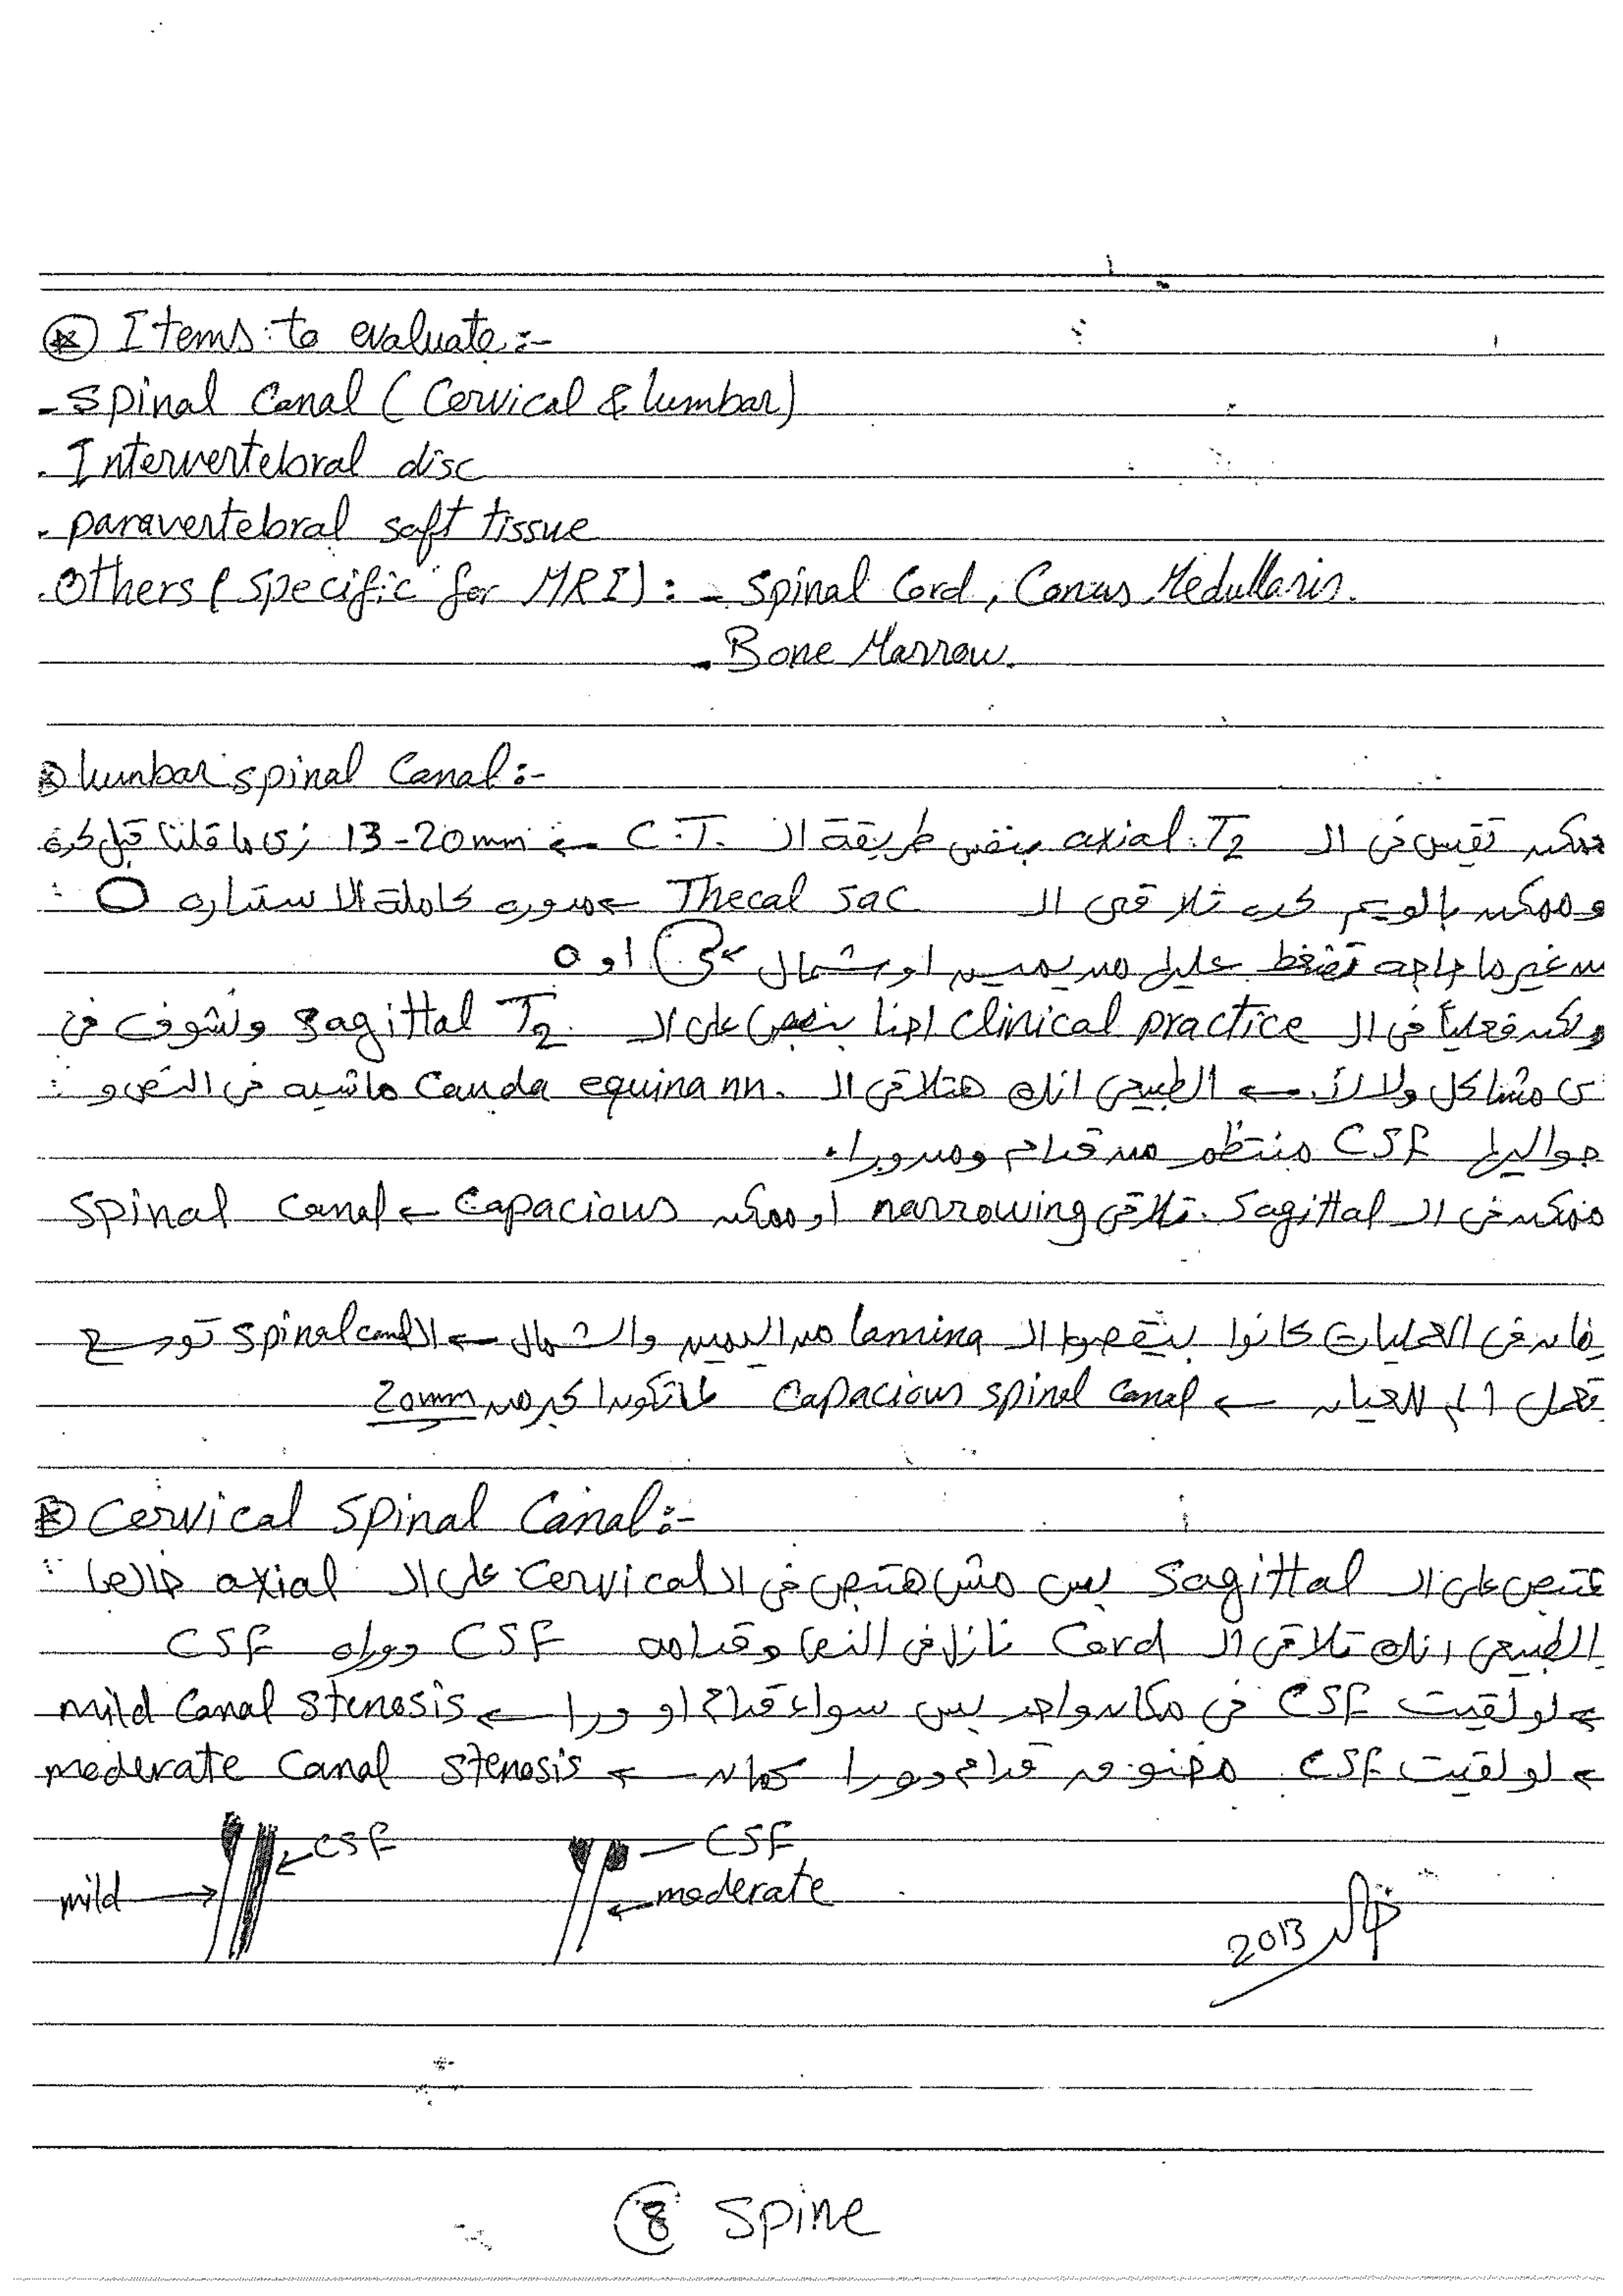 Items to evaluate:-
- Spinal Canal (Cervical & lumbar)
. Intervertebral disc
. paravertebral soft tissue
. Others (specific for MRI): - Spinal Cord, Conus Medullaris.
- Bone Marrow.
lumbar spinal Canal:-
ممكن تقيس فى الـ axial T2 بنفس طريقة الـ C.T. ← 13-20mm زى ما قلنا قبل كده
وممكن بالويم كده تلاقى الـ Thecal sac ← مدوره كاملة الاستداره O
من غير ما حاجه تضغط عليها من يمين او شمال او O
ولكن فعلياً فى الـ clinical practice احنا بنبص على الـ Sagittal T2 ونشوف فى
مشاكل ولا لأ. ← الطبيعى انك هتلاقى الـ Cauda equina nn. ماشيه فى النص و
حواليها CSF منتظم من قدام ومن ورا.
ممكن فى الـ Sagittal تلاقى narrowing او ممكن Capacious ← Spinal Canal
زمان فى العمليات كانوا بيقصوا الـ lamina من اليمين والشمال ← الـ spinal canal توسع
تعمل للعيان ← Capacious spinal Canal لما تكون اكبر من 20mm
Cervical Spinal Canal:-
هنبص على الـ Sagittal بس مش هنبص فى الـ Cervical على الـ axial خالص
الطبيعى انك تلاقى الـ Cord نازل فى النص وقدامه CSF ووراه CSF
← لو لقيت CSF فى مكان واحد بس سواء قدام او ورا ← mild Canal stenosis
← لو لقيت CSF قدام وورا كمان ← moderate Canal Stenosis
CSF
mild
CSF
moderate
2013
8 Spine